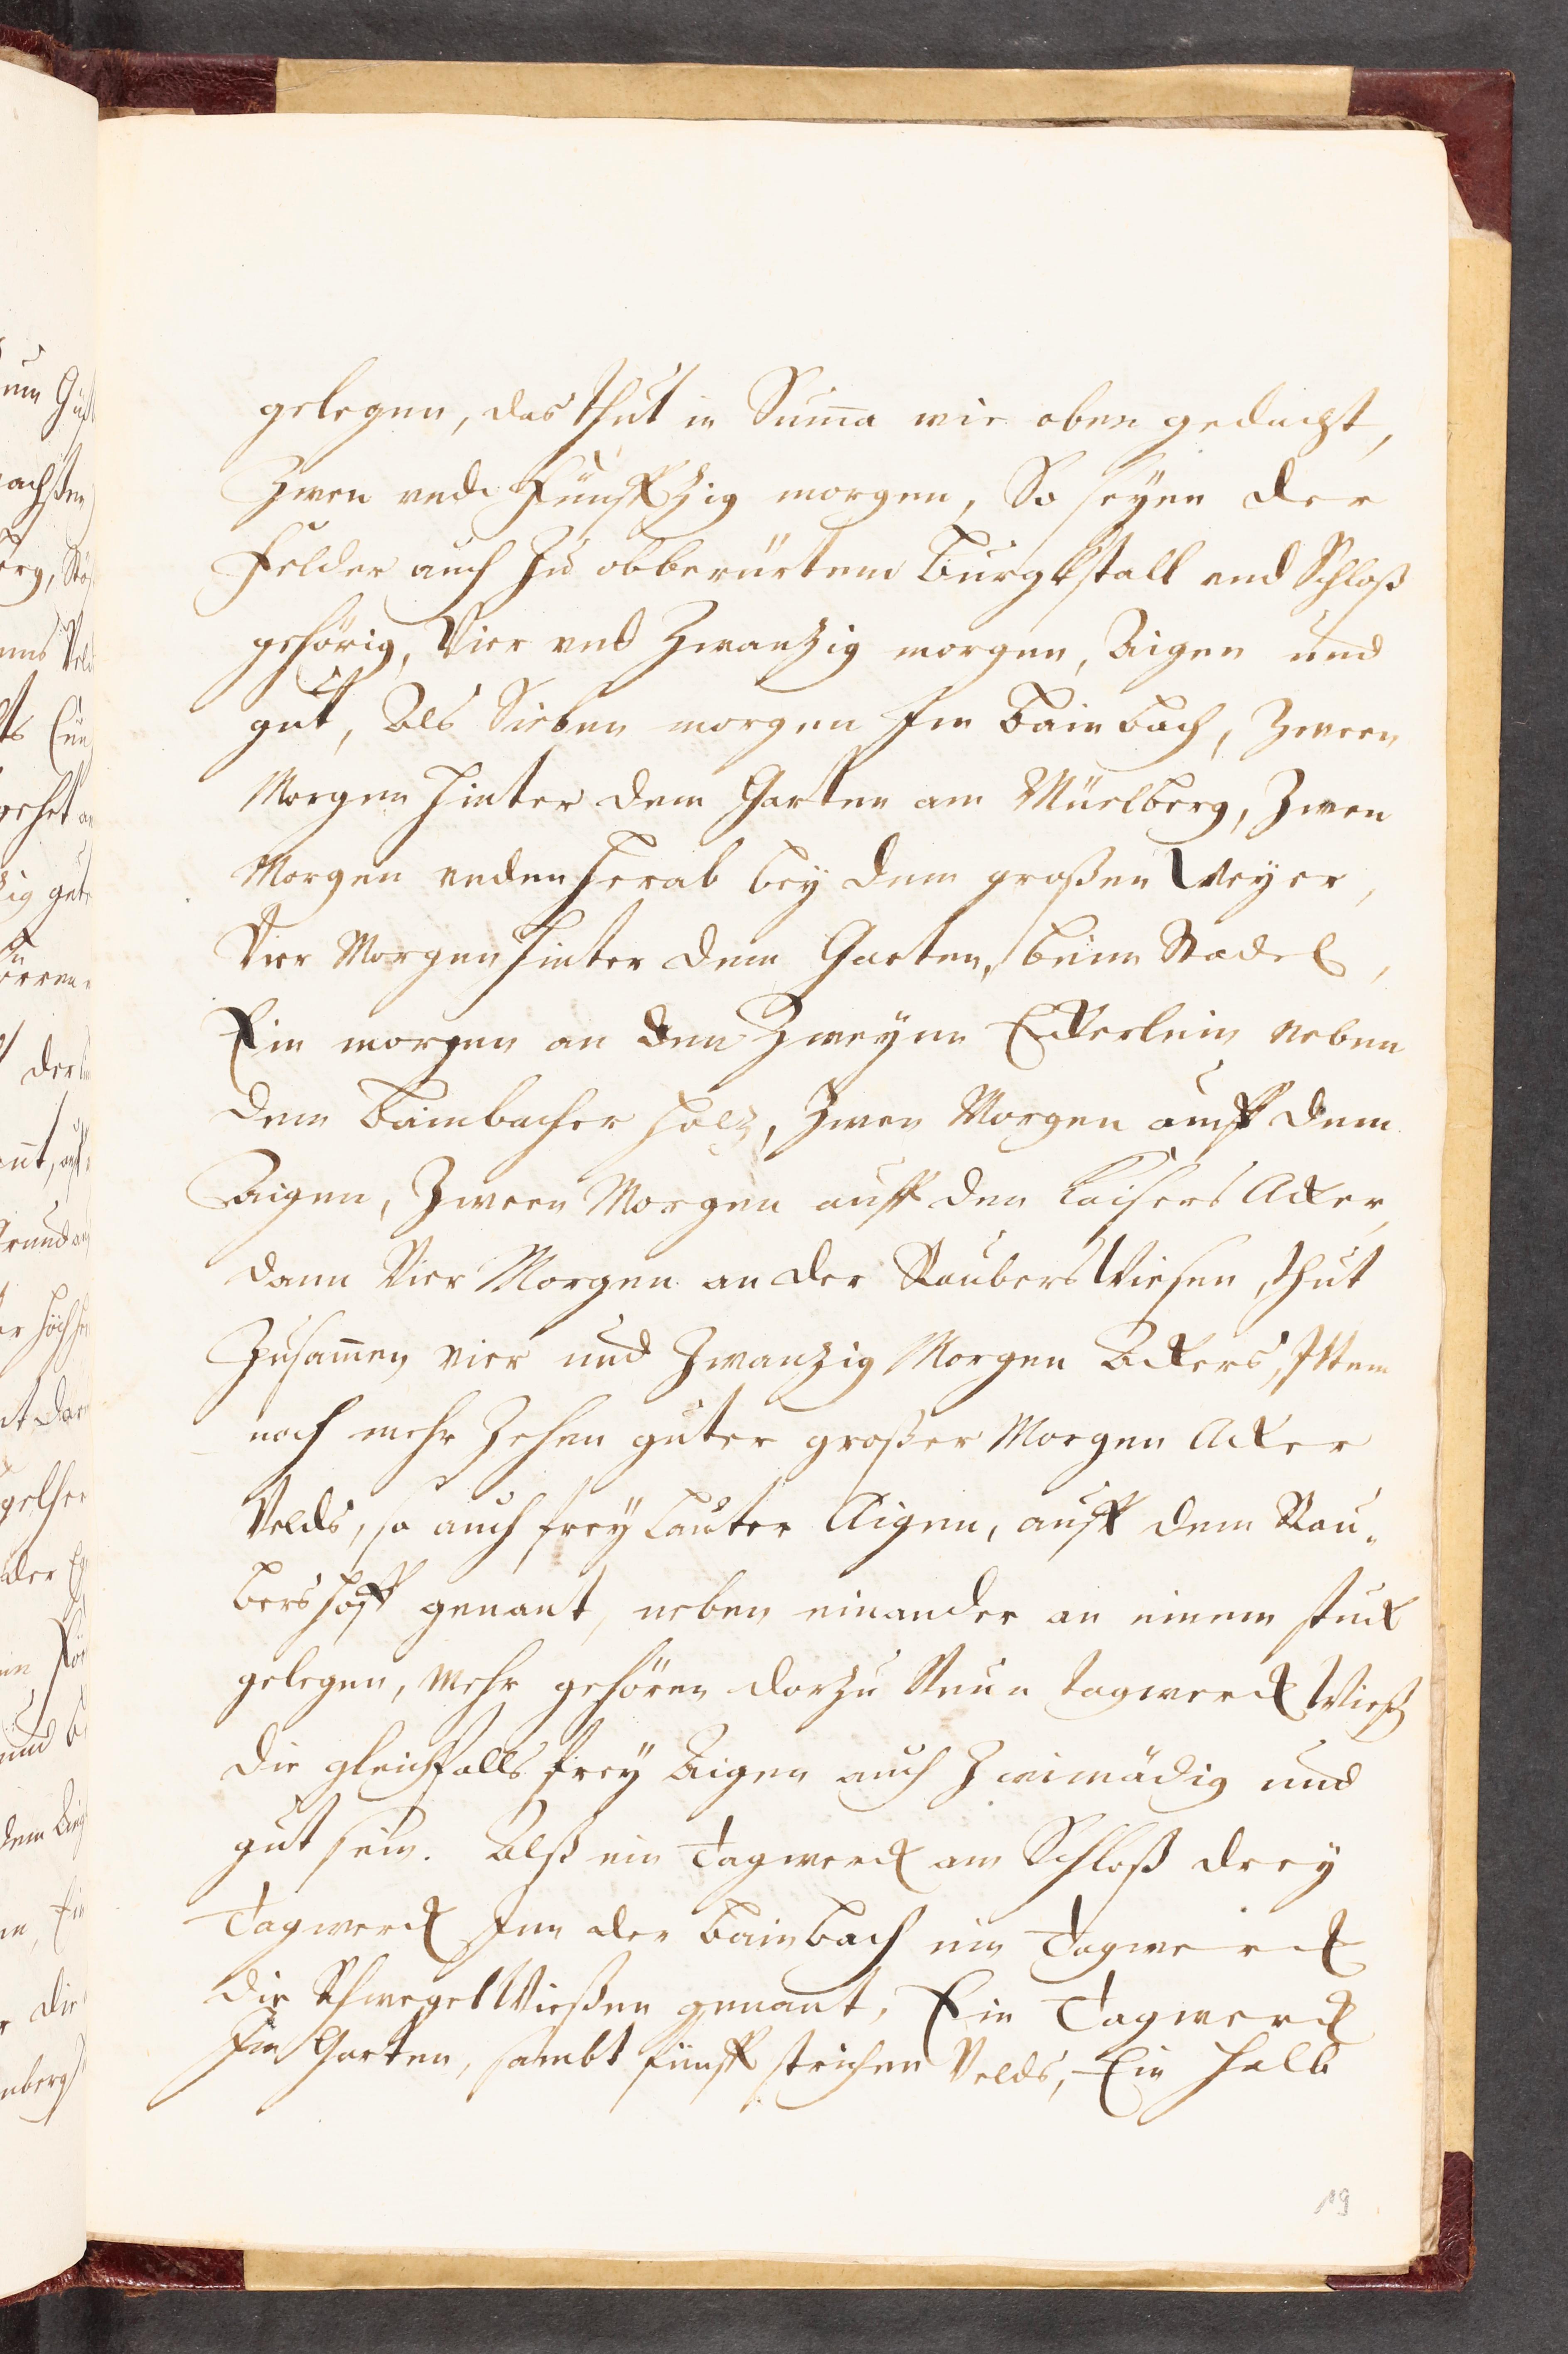 gelegen, das thut in Suma wie oben gedacht,
Zwen vnd Fünffzig morgen, So seyen der
Felder auch Zu obberürtem Burgkstall vnd Schloß
gehörig, Vier vnd Zwanzig morgen, Aigen und
gut, Als Sieben morgen Im Bainbach, Zween
Morgen hinter dem Garten am Müelberg, Zwen
Morgen unden herab bey dem großen Weyer,
Vier Morgen hinter dem Garten, beim Stadel,
Ein morgen an den Zweyen Eckerlein neben
dem Bainbacher Holz, Zwen Morgen auff dem
Aigen, Zween Morgen auff den Kaisers Acker,
dann Vier Morgen an der Raubers Wiesen, thut
Zusamen vier und Zwanzig Morgen Ackers, Ittem
noch mehr Zehen guter großer Morgen Acker
Velds, so auch frey Lauter Aigen, auff dem Rau-
bershoff genant, neben einander an einem stuck
gelegen, Mehr gehören darzu Neun tagwerck Wieß
die gleichfalls frey Aigen auch Zwimädig und
gut sein. Alß ein Tagwerck am Schloß drey
Tagwerck Inn der Bainbach ein Tagwerck
die Schwegel Wießen genant, Ein Tagwerck
Im Garten, sambt fünff strichen Velds, Ein halb
19